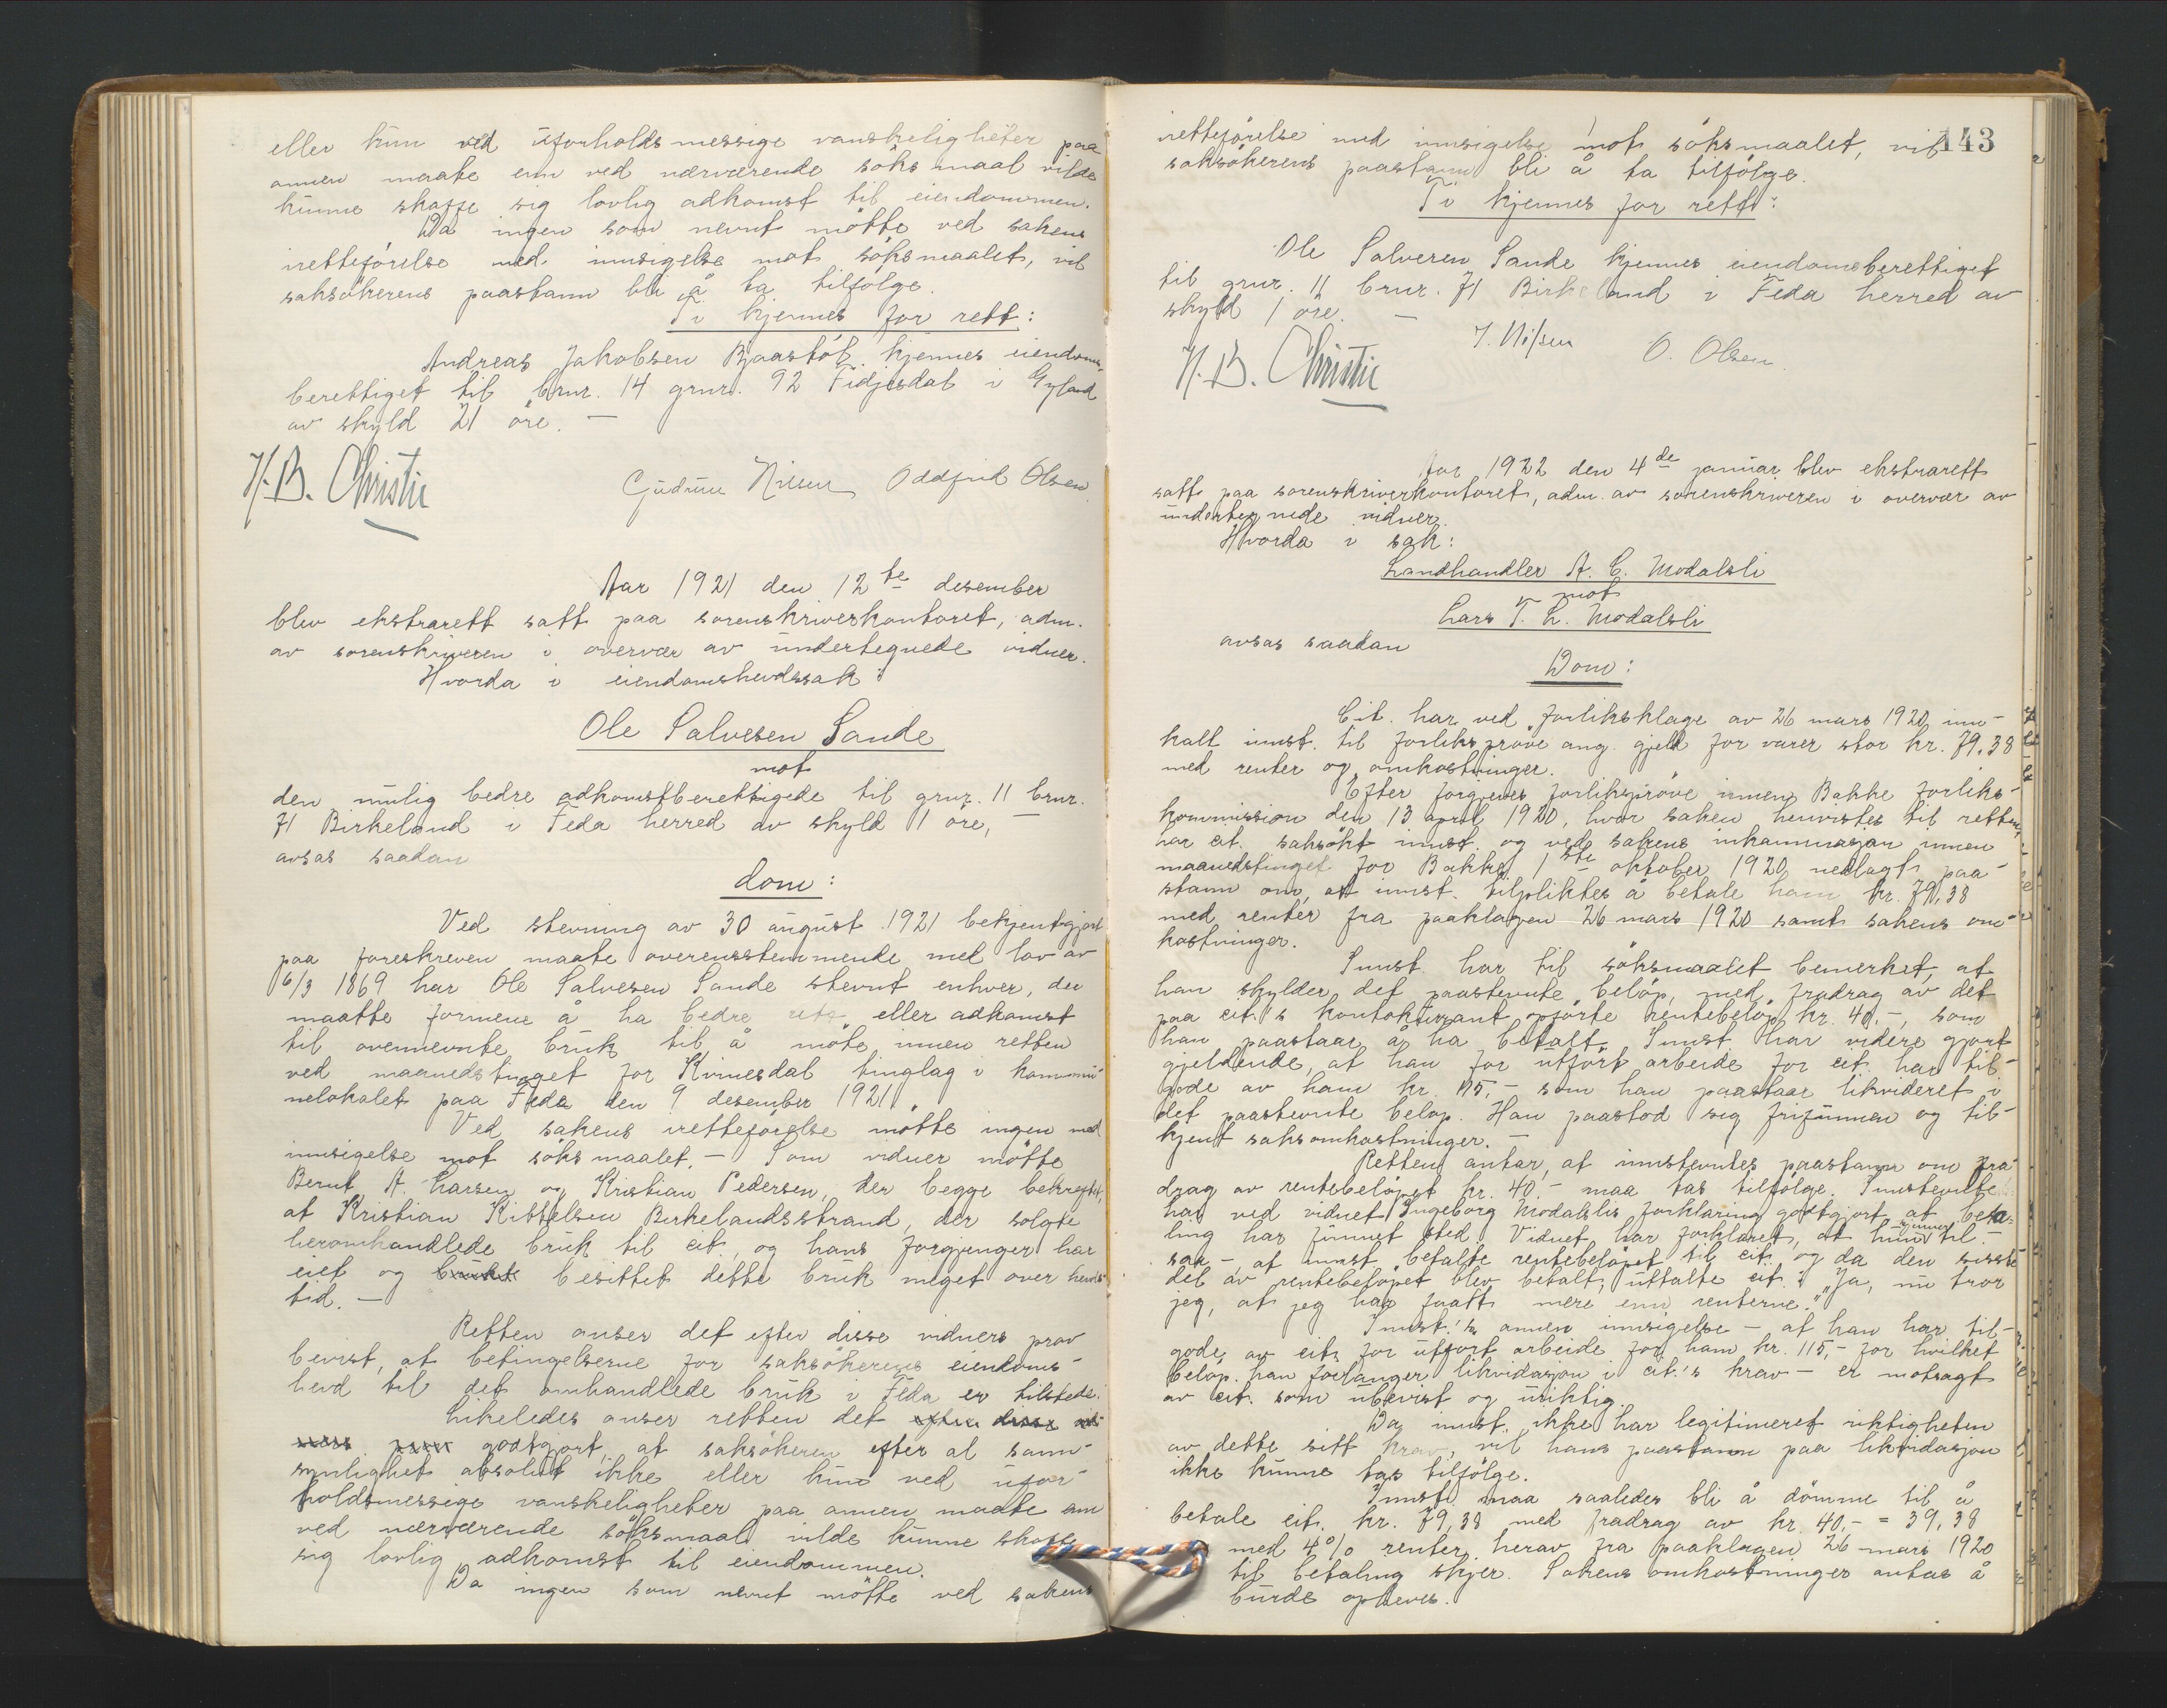 eller kun ved uforholdsmessige vanskeligheter paa
annen maate enn ved nærværende söksmaal vilde
kunne skaffe sig lovlig adkomst til eiendommen.
Da ingen som nevnt mötte ved sakens
iretteförelse med innsigelse mot söksmaalet, vil
saksökerens paastann bli å ta tilfölge.
Ti kjennes for rett:
Andreas Jakobsen Bjaastöl kjennes eiendoms-
berettiget til brnr. 14 grnr. 92 Fidjedal i Gyland
av skyld 21 öre. —
H.B. Christie
Gudrun Nilsen Oddfrid Olsen
Aar 1921 den 12te desember
blev ekstrarett satt paa sorenskriverkontoret, adm.
av sorenskriveren i overvær av undertegnede vidner.
Hvorda i eiendomshevdssak
Ole Salvesen Sande
mot
den mulig bedre adkomstberettigede til grnr. 11 brnr.
71 Birkeland i Feda herred av skyld 1 öre, —
avsas saadan
dom:
Ved stevning av 30 august 1921 bekjentgjort
paa foreskreven maate overensstemmende med lov av
16/3 1869 har Ole Salvesen Sande stevnt enhver, der
maatte formene å ha bedre rett eller adkomst
til ovennevnte bruk til å möte innen retten
ved maanedstinget for Kvinesdal tinglag i kommu-
nelokalet paa Feda den 9 desember 1921.
Ved sakens iretteförelse mötte ingen med
innsigelse mot söksmaalet. — Som vidner mötte
Bernt A. Larsen og Kristian Pedersen, der begge bekreftet,
at Kristian Kittelsen Birkelandsstrand, der solgte
heromhandlede bruk til cit., og hans forgjenger har
eiet og brukt besittet dette bruk meget over hevds
tid. —
Retten anser det efter disse vidners prov
bevist, at betingelserne for saksökerens eiendoms-
hevd til det omhandlede bruk i Feda er tilstede.
Likeledes anser retten det efter disse vid-
ners prov godtgjort, at saksökeren efter al sann-
synlighet absolut ikke eller kun ved ufor-
holdsmessige vanskeligheter paa annen maate enn
ved nærværende söksmaal vilde kunne skaffe
sig lovlig adkomst til eiendommen.
Da ingen som nevnt mötte ved sakens
143
iretteförelse med innsigelse mot söksmaalet, vil
saksökerens paastann bli å ta tilfölge.
Ti kjennes for rett:
Ole Salvesen Sande kjennes eiendomsberettiget
til grnr. 11 brnr. 71 Birkeland i Feda herred av
skyld 1 öre. —
H.B. Christie
J. Nilsen
O. Olsen
Aar 1922 den 4de januar blev ekstrarett
satt paa sorenskriverkontoret, adm. av sorenskriveren i overvær av
undertegnede vidner.
Hvorda i sak:
Landhandler A. C. Modalsli
mot
Lars T. L. Modalsli
avsas saadan
Dom:
Cit. har ved forliksklage av 26 mars 1920 inn-
kalt innst. til forlikspröve ang. gjeld for varer stor kr. 79,38
med renter og omkostninger.
Efter forgjeves forlikspröve innen Bakke forliks-
kommission den 13 april 1920, hvor saken henvistes til retten,
har cit. saksökt innst. og ved sakens inkaminasjon innen
maanedstinget for Bakke 1ste oktober 1920 nedlagt paa-
stann om, at innst. tilpliktes å betale ham kr. 79,38
med renter fra paaklagen 26 mars 1920 samt sakens om-
kostninger.
Innst. har til söksmaalet bemerket, at
han skylder det paastevnte belöp, med fradrag av det
paa cit.'s kontokurrant opförte rentebelöp kr. 40,-, som
han paastaar å ha betalt. Innst. har videre gjort
gjeldende, at han for utfört arbeide for cit. har til-
gode av ham kr. 115,- som han paastaar likvideret i
det paastevnte belöp. Han paastod sig frifunnen og til-
kjent saksomkostninger. —
Retten antar, at innstevntes paastann om fra-
drag av rentebelöpet kr. 40.- maa tas tilfölge. Innstevnte
har ved vidnet Ingeborg Modalslis forklaring godtgjort at beta-
ling har funnet sted. Vidnet har forklaret, at hun til-
saa - at innst. betalte rentebelöpet til cit. og da den sisste
del av rentebelöpet blev betalt, uttalte cit.: "Ja, nu tror
jeg, at jeg har faatt mere enn renterne."
Innst.'s annen innsigelse — at han har til-
gode av cit. for utfört arbeide for ham kr. 115,- for hvilket
belöp han forlanger likvidasjon i cit.'s krav — er motsagt
av cit. som ubevist og uriktig.
Da innst. ikke har legitimeret riktigheten
av dette sitt krav, vil hans paastann paa likvidasjon
ikke kunne tas tilfölge.
Innst. maa saaledes bli å dömme til å
betale cit. kr. 79,38 med fradrag av kr. 40,- = 39,38
med 4% renter herav fra paaklagen 26 mars 1920
til betaling skjer. Sakens omkostninger antas å
burde opheves.